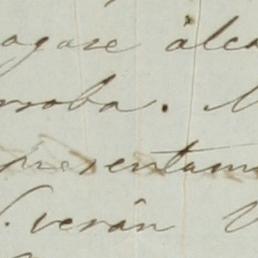 agase alca
rroba. M
presentam
S. verán V